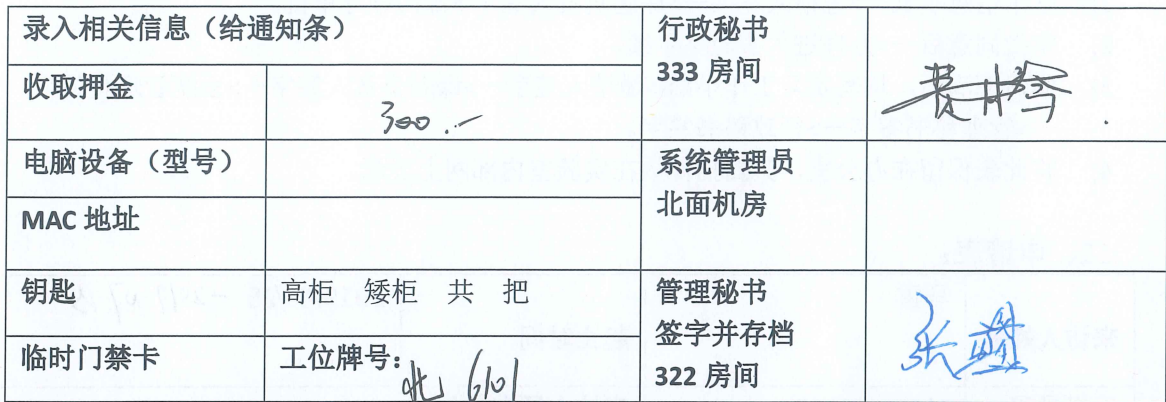 录入相关信息（给通知条）
行政秘书
333 房间
收取押金
300.-
电脑设备（型号）
系统管理员
北面机房
MAC 地址
钥匙
高柜 矮柜 共 把
管理秘书
签字并存档
322 房间
临时门禁卡
工位牌号：北 6101